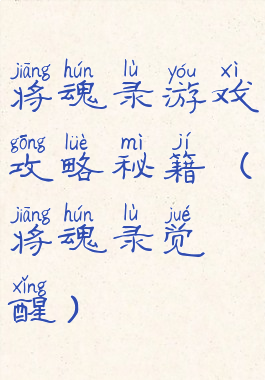 jiāng hún lù yóu xì
将魂录游戏
gōng lüè mì jí
攻略秘籍（
jiāng hún lù jué
将魂录觉
xǐng
醒）